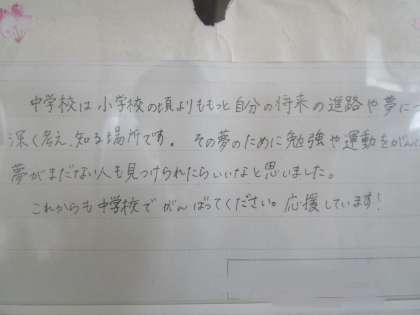 中学校は小学校の頃よりももっと自分の将来の進路や夢に
深く考え、知る場所です。その夢のために勉強や運動をがん
夢がまだない人も見つけられたらいいなと思いました。
これからも中学校でがんばってください。応援しています!